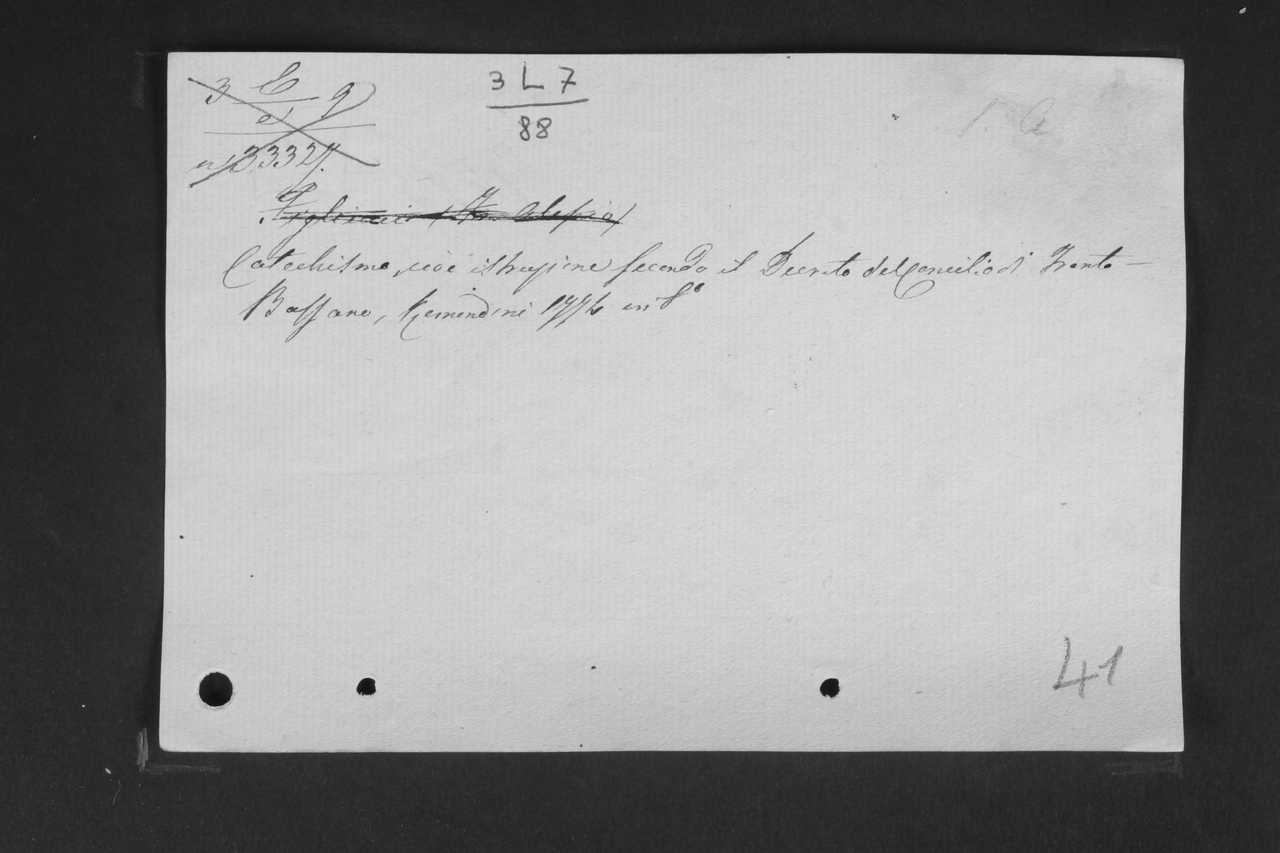 3 C 9
3 L 7
88
33327
Figliucci (Fr. Alessio)
Catechismo, cioè istruzione secondo il Decreto del Concilio di Trento —
Bassano, Remondini 1774 in 8°
41